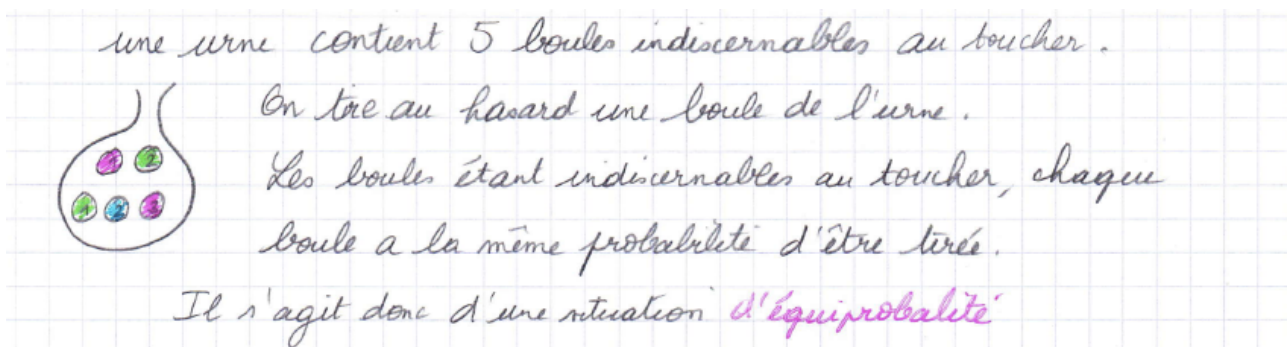 une urne contient 5 boules indiscernables au toucher.
On tire au hasard une boule de l'urne.
1 2
Les boules étant indiscernables au toucher, chaque
1 2 3
boule a la même probabilité d'être tirée.
Il s'agit donc d'une situation d'équiprobalité